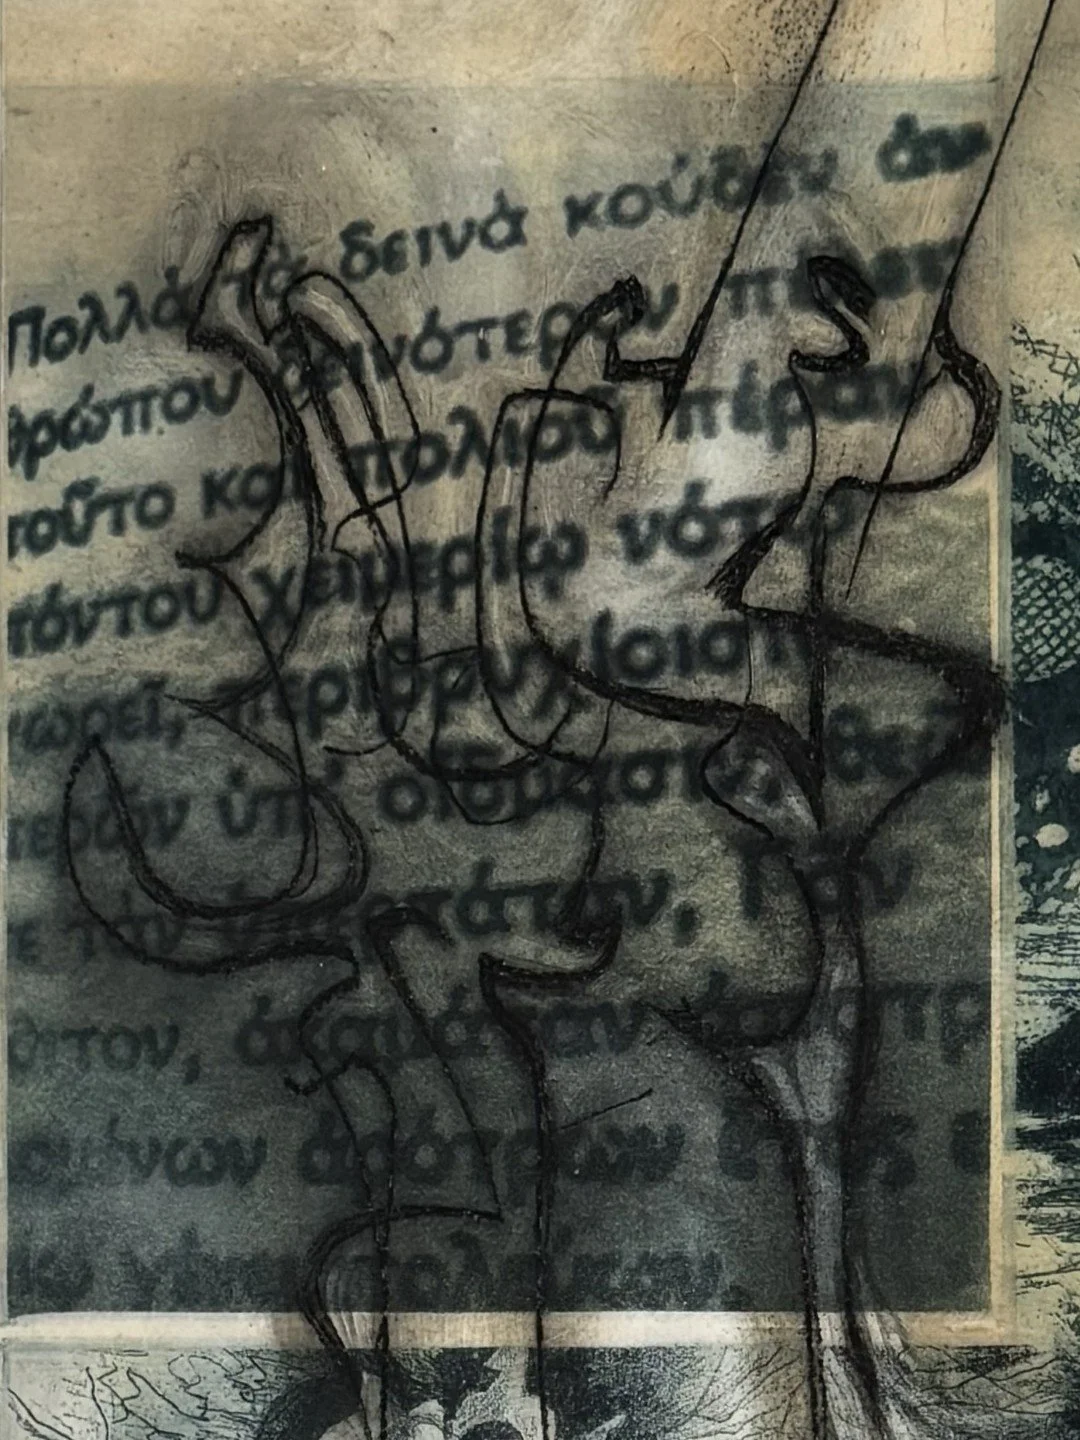 Πολλὰ τὰ δεινὰ κοὐδὲν ἀν
θρώπου δεινότερον πέλει
τοῦτο καὶ πολιοῦ πέραν
πόντου χειμερίῳ νότῳ
χωρεῖ, περιβρυχίοισιν
περῶν ὑπ' οἴδμασιν, θε
τε τὰν ὑπερτάταν, Γᾶν
θιτον, ἀκαμάταν ἀποτρ
ομένων ἀρότρων ἔτος ε